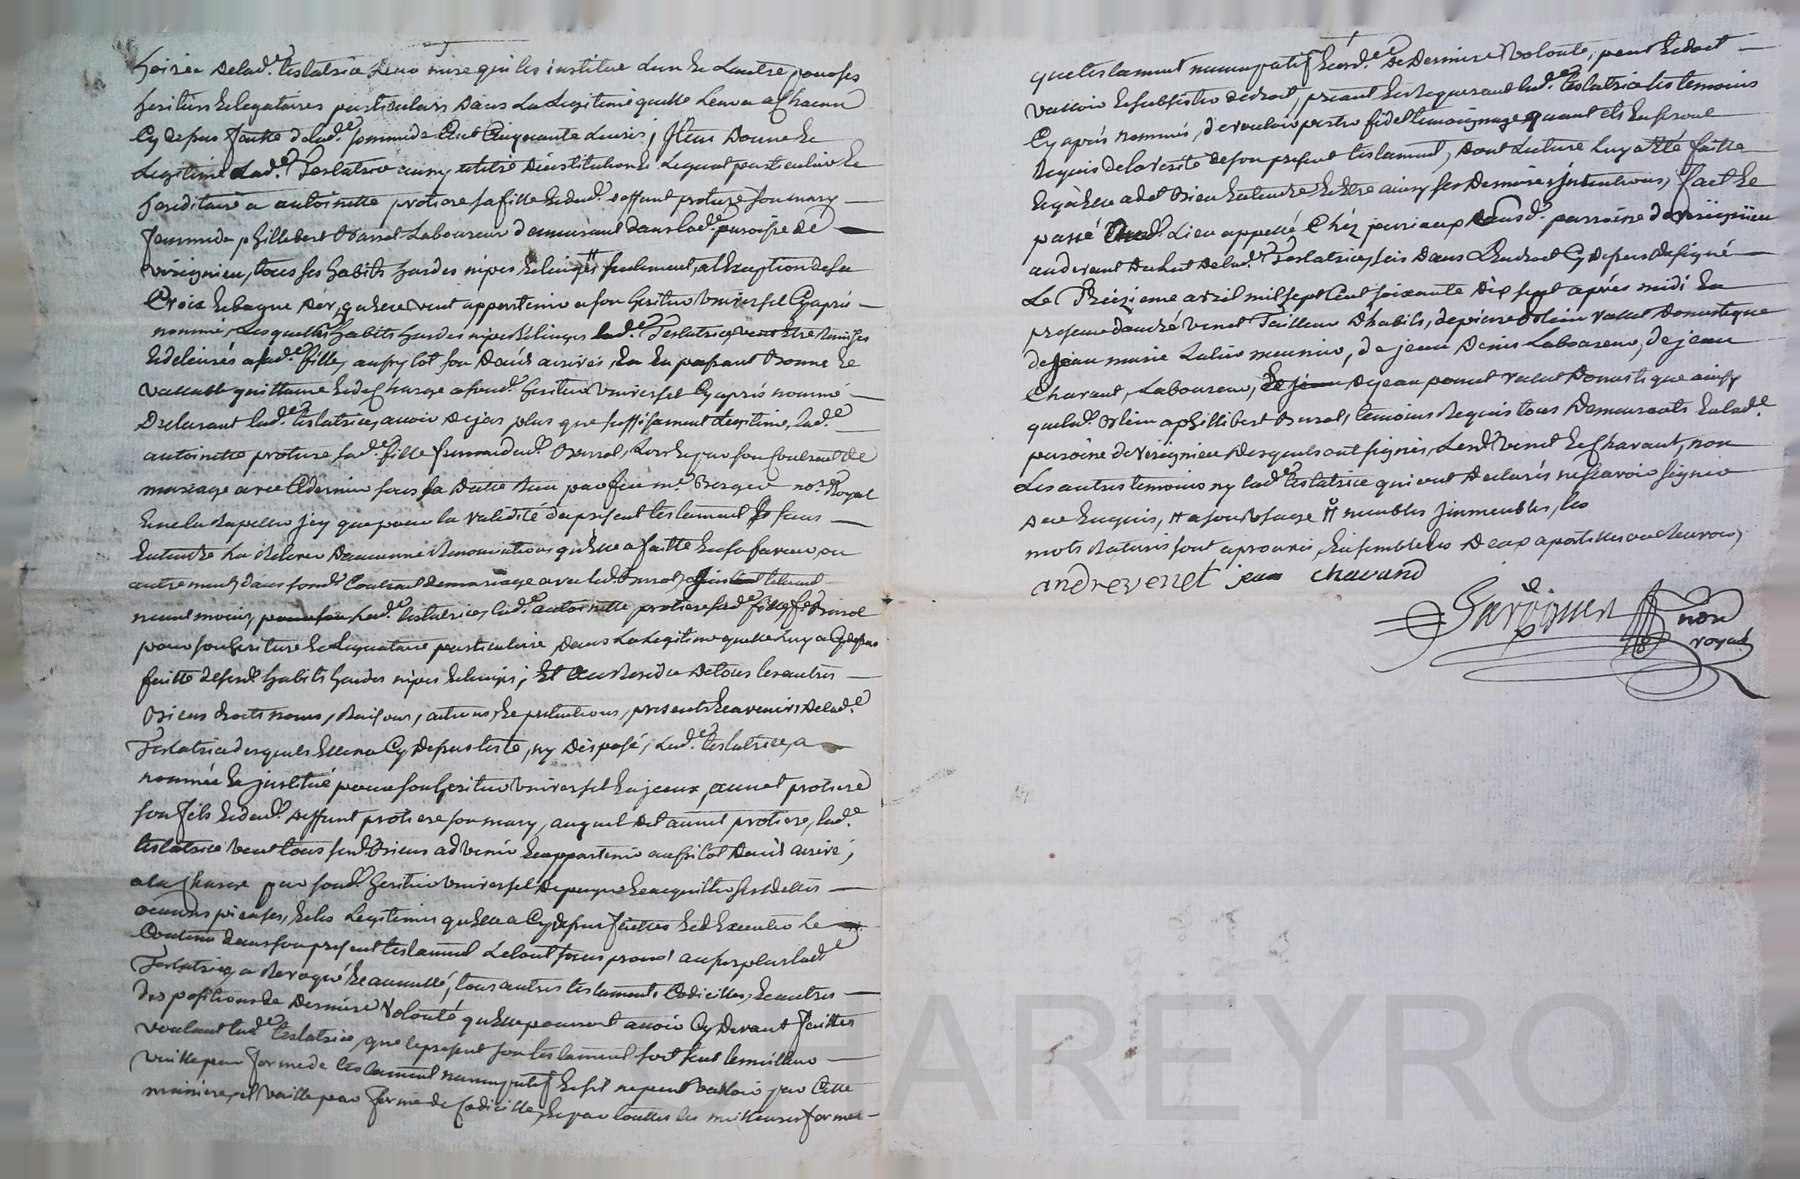 hoirie de lad.e testatrice leur mere qui les institue l'un et l'autre pour ses
heritiers et legataires particuliers dans la Legitime quelle leur a a chacun
Cy depuis faitte de lad.e somme de Cent Cinquante Livres; Item donne et
Legitime Lad.e Testatrice aussy a titre d'institution et Legat particulier et
hereditaire a antoinette protiere sa fille et dud. deffunt protiere son mary
femme de phillebert Laboureur demeurant dans lad.e paroisse de
verigneu, tous ses habits hardes nipes et linges # seulement, a l'exception de sa
Croix et bague d'or, qu'elle veut appartenir a son heritier universel Cy après
nommé, Lesquels habits hardes nipes et linges lad.e Testatrice veut etre remises
et delivrés a sad.e fille, aussy tot son Decés arrivés, en en passant bonne et
vallable quittance et decharge a sond. heritier universel Cy aprés nommé
Declarant lad.e testatrice, avoir deja plus que suffisament Legitimé, lad.e
antoinette protiere sad.e fille femme dud. lors et par son Contract de
mariage avec Ce dernier sous sa datte Receu par feu m.e Berger no.re Royal
quelle Rapelle icy que pour la validité du présent testament et sans
entendre La Relever d'aucunne Renonciations qu'elle a faitte en sa faveur ou
autrement, dans sond. Contract de mariage avec led.
neant moins, Lad.e testatrice, lad.e antoinette protiere sad.e fille
pour son heritiere et Legataire particuliere, dans La Legitime quelle luy a Cy depuis
faitte de sesd. habits hardes nipes et linges; Et au Residu de tous les autres
biens droits noms, Raisons, actions, et pretentions, presents et avenirs de lad.e
Testatrice desquels Elle n'a Cy depuis testé, ny disposé; Lad.e testatrice, a
nommée et institué pour son heritier universel et a jceux, annet protiere
son fils et dud. deffunt protiere son mary, auquel dit annet protiere, lad.e
testatrice veut tous sesd. biens advenir et appartenir aussitot Decés arrivé;
a la Charge par sond. heritier universel de payer et acquitter ses dettes
œuvres pieuses, et les Legitimes qu'elle a Cy depuis faittes et d'Executer le
Contenu dans son present testament Le tout sous peine! au surplus lad.e
Testatrice, a Revoqué et annullé, tous autres testaments Codicilles, et autres
dispositions de Derniere Volonté qu'elle pourroit avoir Cy Devant faittes
voulant lad.e testatrice, que le present son testament soit seul le meilleur
vaille par forme de testament nuncupatif et s'il ne peut valloir par Cette
maniere, qu'il vaille par forme de Codicille, et par touttes les meilleures formes
que testament nuncupatif et ord.ce de Derniere Volonté, peut et doit
valloir et subsister de droit, priant et Requerant lad.e testatrice les temoins
Cy aprés nommés, de vouloir porter fidel temoignage quant ils en seront
Requis de la verité de son présent testament, dont Lecture luy a été faitte
et qu'elle a dit bien entendre et etre ainsy ses Dernieres intentions, fait et
passé aud. Lieu appellé Chéz juriaux dans lad. paroisse de verigneu
au devant du lit de lad.e Testatrice, sis dans l'Endroit Cy depuis designé
Le Treizieme avril mil sept Cent soixante dix sept aprés midi En
presence d'andré venet Tailleur d'habits, de pierre vallet Domestique
de jean marie meunier, de jean Denis Laboureur, de jean
Charant, Laboureur, de jean de jean ponet valet Domestique ainsy
que led. a phillibert temoins Requis tous Demeurants En lad.e
paroisse de verigneu desquels ont signés, Lesd. venet et Charant, non
Les autres temoins ny lad.e testatrice qui ont Declarés ne sçavoir signer
de ce Enquis, # a son usage # meubles jmmeubles, les
mots Raturés sont aprouvés, Ensemble les Deux apostilles ou Renvois,
andre venet jean chavand
no.re
royal
HAREYRON